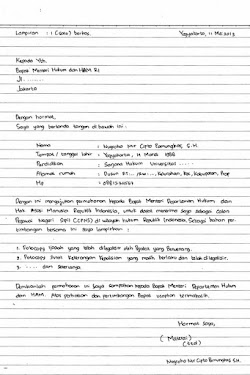 Lampiran : 1 (satu) berkas. Yogyakarta, 11 Mei 2013
Kepada Yth.
Bapak Menteri Hukum dan HAM R.I
Jl. ........
Jakarta
Dengan hormat,
Saya yang bertanda tangan di bawah ini :
Nama : Nugroho Nur Cipto Pamungkas, S.H.
Tempat / tanggal lahir : Yogyakarta, 11 Maret 1988
Pendidikan : Sarjana Hukum Universitas .....
Alamat rumah : Dusun RT... /RW..., Kelurahan, Kec, Kabupaten, Prov
Hp :
Dengan ini mengajukan permohonan kepada Bapak Menteri Departemen Hukum dan
Hak Asasi Manusia Republik Indonesia, untuk dapat menerima saya sebagai Calon
Pegawai Negeri Sipil (CPNS) di wilayah hukum Republik Indonesia. Sebagai bahan per-
timbangan bersama ini saya lampirkan :
1. Fotocopy Ijazah yang telah dilegalisir oleh Pejabat yang Berwenang.
2. Fotocopy Surat Keterangan Kepolisian yang masih berlaku dan telah dilegalisir.
3. ..... dan seterusnya.
Demikianlah permohonan ini saya sampaikan kepada Bapak Menteri Departemen Hukum
dan HAM. Atas perhatian dan pertimbangan Bapak ucapkan terimakasih.
Hormat saya,
( Materai )
(ttd)
Nugroho Nur Cipto Pamungkas S.H.